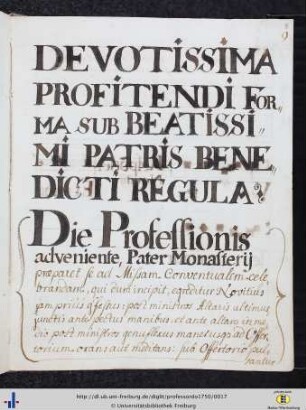 9
DEVOTISSIMA
PROFITENDI FOR„
MA SUB BEATISSI„
MI PATRIS BENE„
DICTI REGULA
Die Professionis
adveniente, Pater Monasterij
præparet se ad Missam Conventualem cele„
brandam, qui dum incipit, egreditur Novitius
jam prius assessus: post ministros Altaris ultimus,
junctis ante pectus manibus, et ante altare in me„
dio post ministros genuflexus manet usq ad Offer„
torium orans aut meditans: quo Offertorio
http://dl.ub.uni-freiburg.de/diglit/professordo1750/0017
© Universitätsbibliothek Freiburg